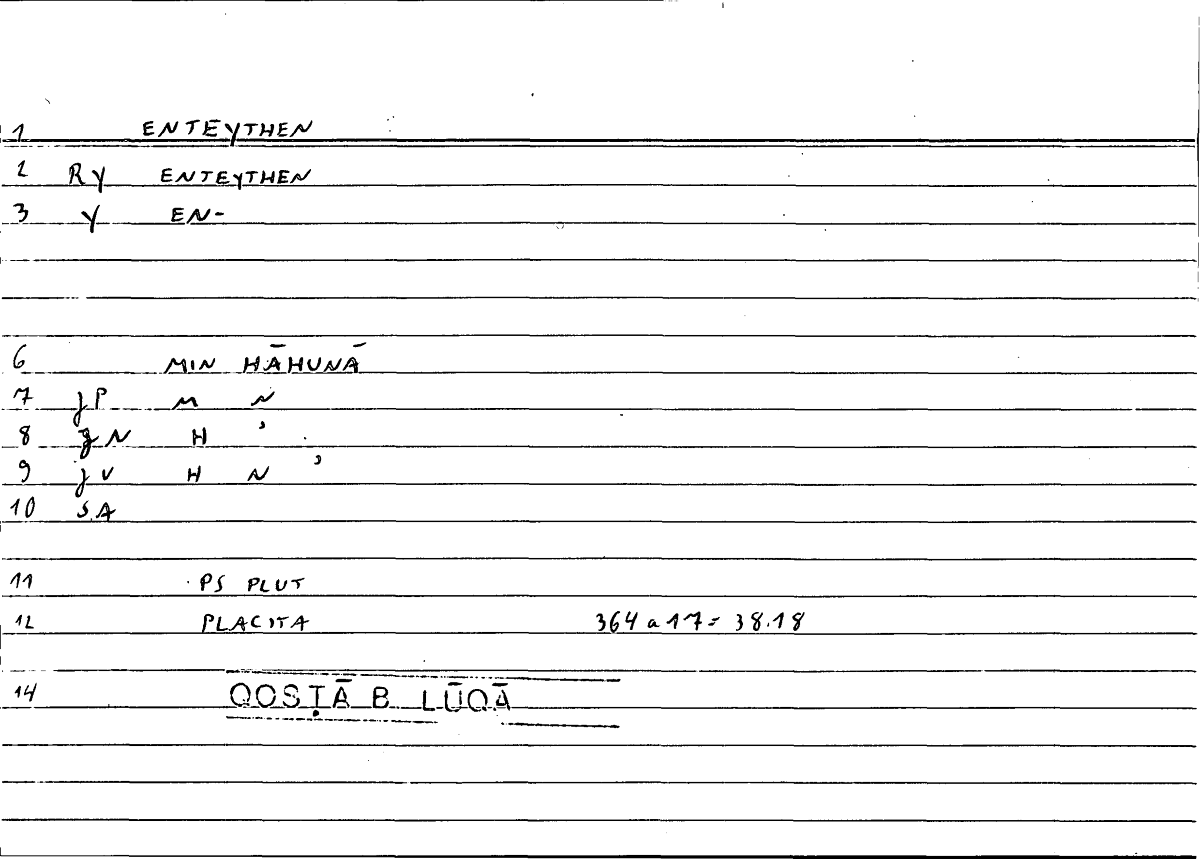 1 ENTEYTHEN
2 RY ENTEYTHEN
3 Y EN-
6 MIN HĀHUNĀ
7 jP M N
8 gN H ʾ
9 jV H N ʾ
10 SA
11 PS PLUT
12 PLACITA 364 a 17 = 38.18
14 QOSṬĀ B LŪQĀ